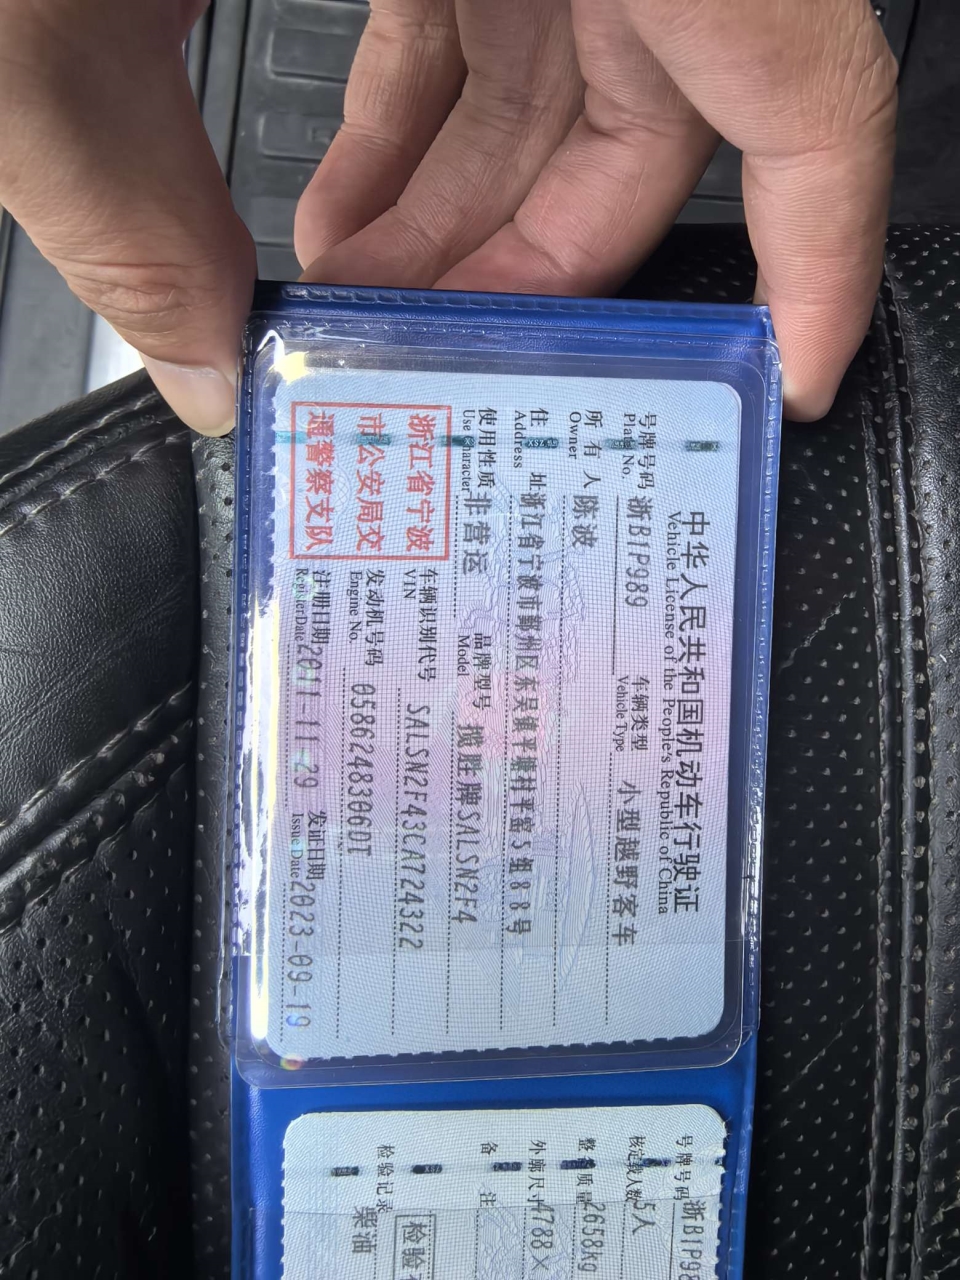 中华人民共和国机动车行驶证
Vehicle License of the People's Republic of China
号牌号码 浙B1P989 车辆类型 小型越野客车
Plate No. Vehicle Type
所有人 陈波
Owner
住址 浙江省宁波市鄞州区东吴镇平塘村平窑5组88号
Address
使用性质 非营运 品牌型号 揽胜牌SALSN2F4
Use Character Model
浙江省宁波
市公安局交
通警察支队
车辆识别代号 SALSN2F43CA724322
VIN
发动机号码 0586248306DT
Engine No.
注册日期 2011-11-29 发证日期 2023-09-19
Register Date Issue Date
号牌号码 浙B1P98
核定载人数 5人
整备质量 2658kg
外廓尺寸 4788×
备注
检验
检验记录 柴油